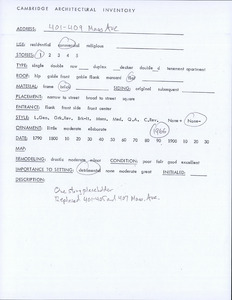 CAMBRIDGE ARCHITECTURAL INVENTORY
ADDRESS: 401-409 Mass. Ave
USE: residential commercial religious
STORIES: 1 2 3 4 5
TYPE: single double row duplex decker tenement apartment
ROOF: hip gable front gable flank mansard flat
MATERIAL: frame SIDING: original
PLACEMENT: narrow to street broad to street square
ENTRANCE: flank front side front center
ORNAMENT: little moderate elaborate 1966
DATE: 1790 1800 10 20 30 40 50 60 70 80 90 1900 10 20 30
MAP:
REMODELING: drastic moderate minor CONDITION: poor fair good excellent
IMPORTANCE TO SETTING: detrimental none moderate great INITIALED:
DESCRIPTION:
One story placeholder
Replaced 401-405 and 407 Mass. Ave.